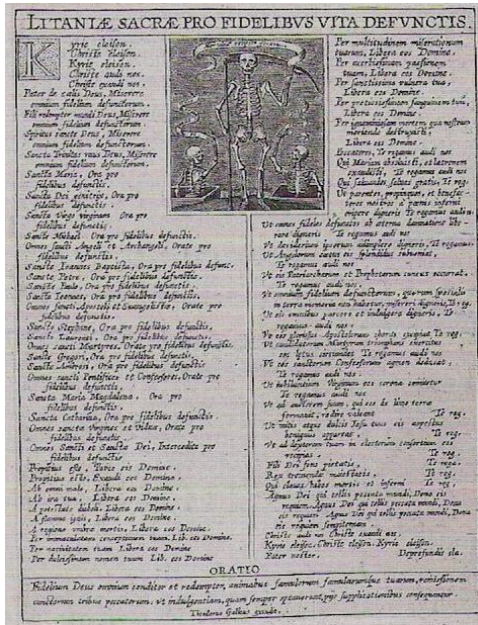 LITANIÆ SACRÆ PRO FIDELIBVS VITA DEFVNCTIS.
Kyrie eleison.
Christe eleison.
Kyrie eleison.
Christe audi nos.
Christe exaudi nos.
Pater de cælis Deus, Miserere
omnium fidelium defunctorum.
Fili redemptor mundi Deus, Miserere
omnium fidelium defunctorum.
Spiritus sancte Deus, Miserere
omnium fidelium defunctorum.
Sancta Trinitas unus Deus, Miserere
omnium fidelium defunctorum.
Sancta Maria, Ora pro
fidelibus defunctis.
Sancta Dei genitrix, Ora pro
fidelibus defunctis.
Sancta Virgo virginum Ora pro
fidelibus defunctis.
Sancte Michael Ora pro fidelibus defunctis.
Omnes sancti Angeli et Archangeli, Orate pro
fidelibus defunctis.
Sancte Ioannes Baptista, Ora pro fidelibus defunc.
Sancte Petre, Ora pro fidelibus defunctis.
Sancte Paule, Ora pro fidelibus defunctis.
Sancte Ioannes, Ora pro fidelibus defunctis.
Omnes sancti Apostoli et Euangelistæ, Orate pro
fidelibus defunctis.
Sancte Stephane, Ora pro fidelibus defunctis.
Sancte Laurenti, Ora pro fidelibus defunctis.
Omnes sancti Martyres, Orate pro fidelibus defunctis.
Sancte Gregori, Ora pro fidelibus defunctis.
Sancte Ambrosi, Ora pro fidelibus defunctis.
Omnes sancti Pontifices et Confessores, Orate pro
fidelibus defunctis.
Sancta Maria Magdalena, Ora pro
fidelibus defunctis.
Sancta Catharina, Ora pro fidelibus defunctis.
Omnes sanctæ virgines et viduæ, Orate pro
fidelibus defunctis.
Omnes Sancti et Sanctæ Dei, Intercedite pro
fidelibus defunctis
Propitius esto, Parce eis Domine.
Propitius esto, Exaudi eos Domine.
Ab omni malo, Libera eos Domine.
Ab ira tua, Libera eos Domine.
A potestate diaboli, Libera eos Domine.
A flamma ignis, Libera eos Domine.
A regione umbræ mortis, Libera eos Domine.
Per immaculatam conceptionem tuam, Lib. eos Domine.
Per nativitatem tuam Libera eos Domine
Per dulcissimum nomen tuum Lib. eos Domine
Per multitudinem miserationum
tuarum, Libera eos Domine.
Per acerbissimam passionem
tuam, Libera eos Domine.
Per sanctissima vulnera tua,
Libera eos Domine.
Per pretiosissimum sanguinem tuum,
Libera eos Domine.
Per ignominiosam mortem qua nostram
moriendo destruxisti,
Libera eos Domine.
Peccatores, Te rogamus audi nos
Qui Mariam absolvisti, et latronem
exaudisti, Te rogamus audi nos
Qui salvandos salvas gratis, Te rog.
Ut parentes, propinquos, et benefac-
tores nostros a pœnis inferni
eripere digneris Te rogamus audi n.
Ut omnes fideles defunctos ab eterna damnatione libe-
rare digneris Te rogamus audi nos
Ut desiderium ipsorum adimplere digneris, Te rogamus.
Te rogamus audi nos
Ut eis Patriarcharum et Prophetarum cuneus occurrat,
Te rogamus audi nos.
Ut omnium fidelium defunctorum, quorum specialis
in terra memoria non habetur, misereri digneris, Te rog.
Ut eis omnibus parcere et indulgere digneris, Te
rogamus audi nos.
Ut eos gloriosus Apostolorum chorus excipiat Te rog.
Te rogamus audi nos
Te rogamus audi nos
Te rog.
Te rog.
Te rog.
Fili Dei fons pietatis, Te rog.
Rex tremendæ maiestatis Te rog.
Qui claves habes mortis et inferni Te rog.
Agnus Dei qui tollis peccata mundi, Dona eis
requiem. Agnus Dei qui tollis peccata mundi, Dona
eis requiem. Agnus Dei qui tollis peccata mundi, Dona
eis requiem sempiternam.
Christe audi nos Christe exaudi nos.
Kyrie eleison, Christe eleison. Kyrie eleison.
Pater noster. Deprofundis cla.
ORATIO
Fidelium Deus omnium conditor et redemptor, animabus famulorum famularumque tuarum, remissionem
cunctorum tribue peccatorum. Vt indulgentiam, quam semper optaverunt, pijs supplicationibus consequantur.
Theodorus Galleus excudit.